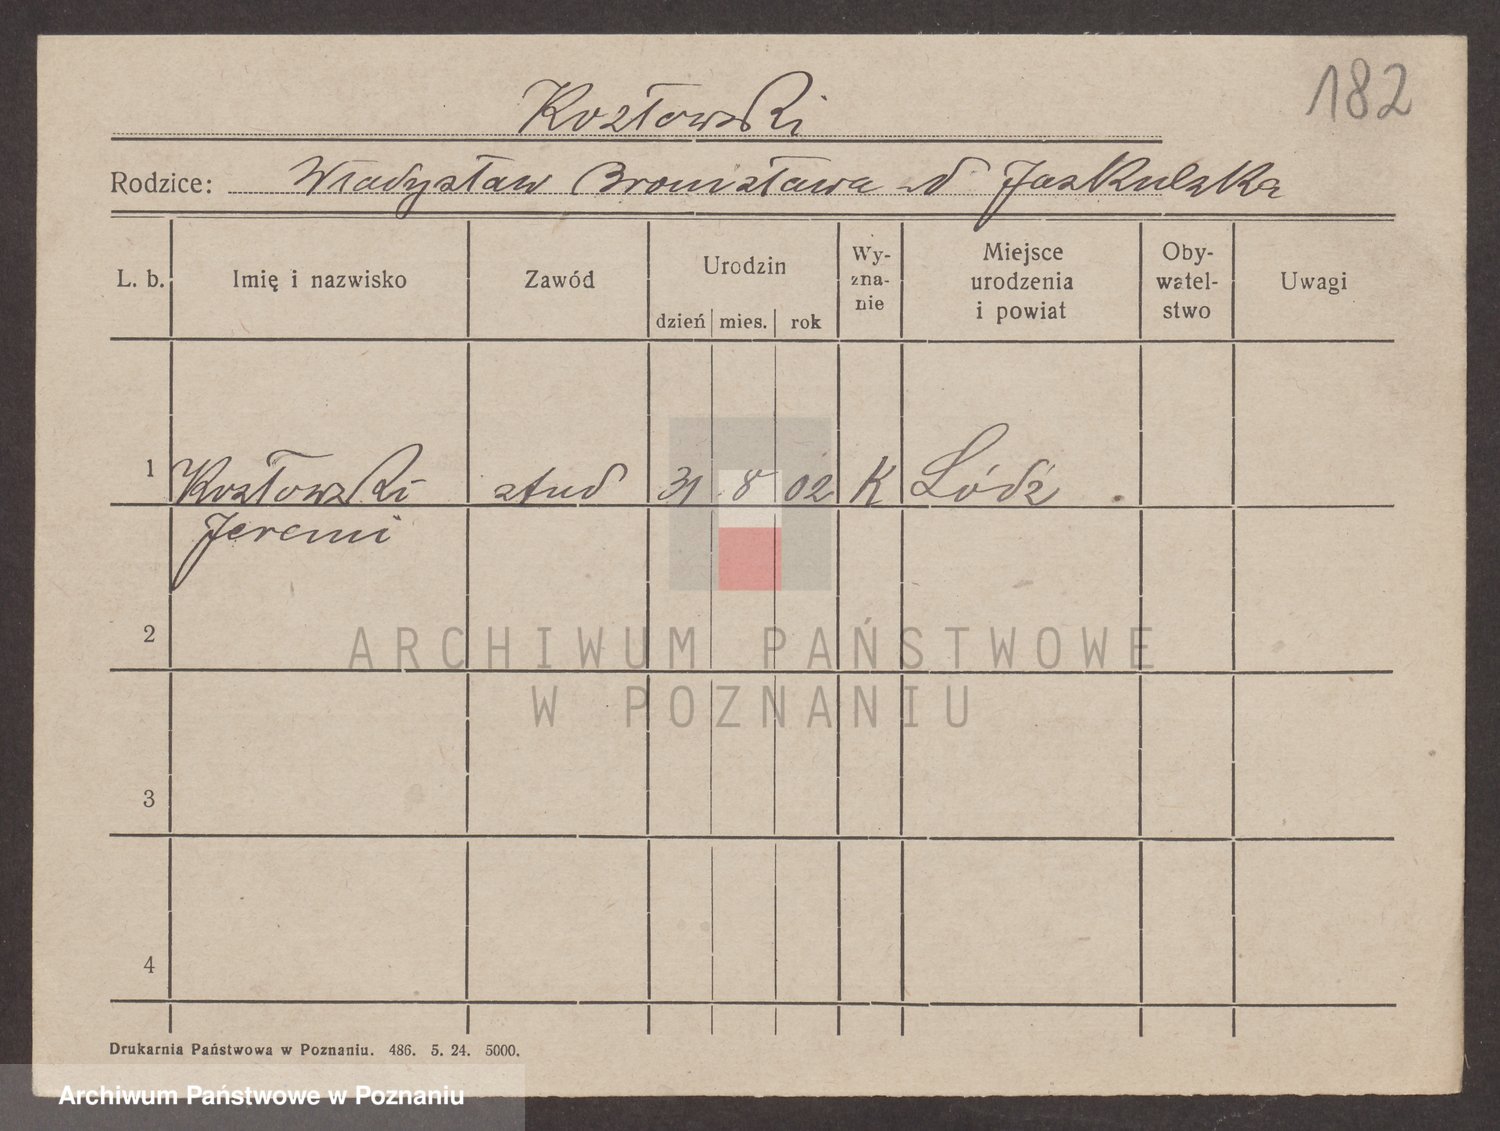 182
Kozłowski
Rodzice: Władysław Bronisława d Jaskulska
L. b. Imię i nazwisko Zawód Urodzin dzień mies. rok Wy-zna-nie Miejsce urodzenia i powiat Oby-watel-stwo Uwagi
1 Kozłowski stud 31 8 02 K Łódź
Jeremi
2
ARCHIWUM PAŃSTWOWE
W POZNANIU
3
4
Drukarnia Państwowa w Poznaniu. 486. 5. 24. 5000.
Archiwum Państwowe w Poznaniu